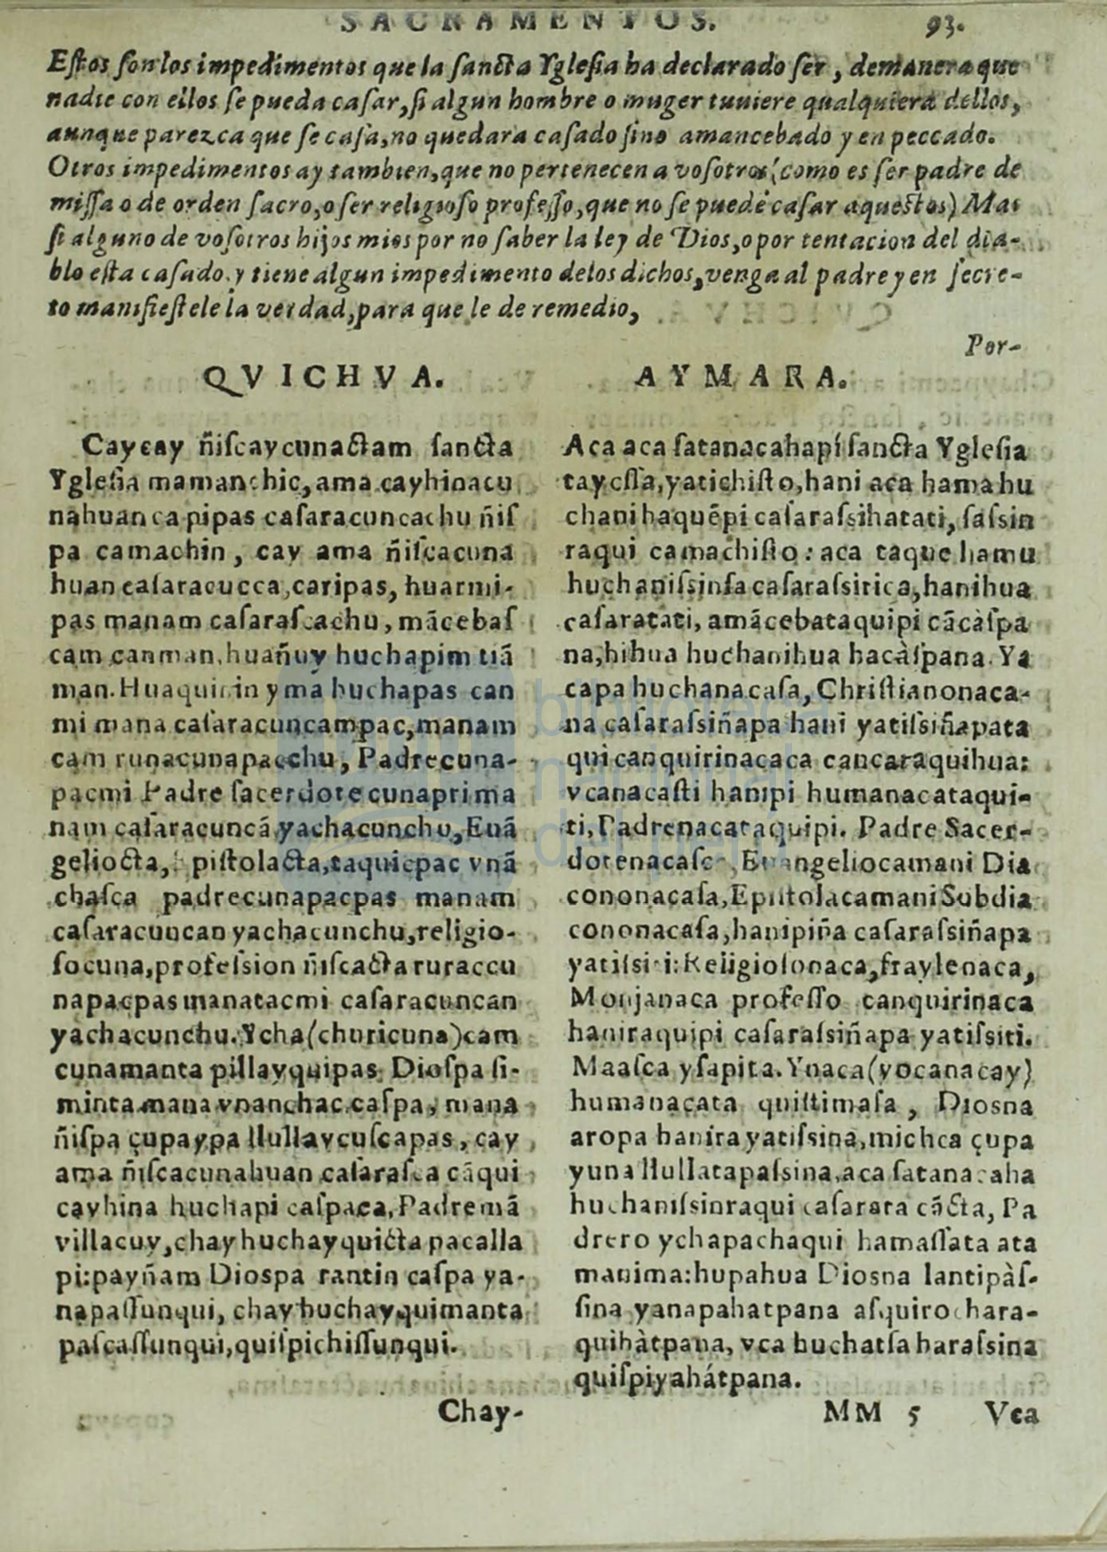 SACRAMENTOS. 93.
Eſtos ſon los impedimentos que la ſancta Ygleſia ha declarado ſer, demanera que
nadie con ellos ſe pueda caſar, ſi algun hombre o muger tuuiere qualquiera dellos,
aunque parezca que ſe caſa, no quedara caſado ſino amancebado y en peccado.
Otros impedimentos ay tambien, que no pertenecen a voſotros (como es ſer padre de
miſſa o de orden ſacro, o ſer religioſo profeſſo, que no ſe puede caſar aqueſtos) Mas
ſi alguno de voſotros hijos mios por no ſaber la ley de Dios, o por tentacion del dia-
blo eſta caſado. y tiene algun impedimento delos dichos, venga al padre y en ſecre-
to manifieſtele la verdad, para que le de remedio,
Por-
QVICHVA.
Caycay ñiſcaycunactam ſancta
Ygleſia mamanchic, ama cayhinacu
nahuanca pipas caſaracuncachu ñiſ
pa camachin, cay ama ñiſcacuna
huan caſaracucca, caripas, huarmi-
pas manam caſaraſcachu, mãcebaſ
cam canman, huañuy huchapim tiã
man. Huaquinin yma huchapas can
mi mana caſaracuncampac, manam
cam runacunapacchu, Padrecuna-
pacmi Padre ſacerdotecunaprima
nam caſaracuncã yachacunchu, Euã
geliocta, Epiſtolacta, taquicpac vnã
chaſca padrecunapacpas manam
caſaracuncan yachacunchu, religio-
ſocuna, profeſsion ñiſcacta ruraccu
napacpas manatacmi caſaracuncan
yachacunchu. Ycha (churicuna) cam
cunamanta pillayquipas Dioſpa ſi-
minta mana vnanchac caſpa, mana
ñiſpa çupaypa llullaycuſcapas, cay
ama ñiſcacunahuan caſaraſca cãqui
cayhina huchapi caſpaca, Padremã
villacuy, chay huchayquicta pacalla
pi: payñam Diospa rantin caſpa ya-
napaſſunqui, chay huchayquimanta
paſcaſſunqui, quiſpichiſſunqui.
Chay-
AYMARA.
Aca aca ſatanacahapi ſancta Ygleſia
tayceſſa, yatichiſto, hani aca hama hu
chani haquẽpi caſaraſsihatati, ſaſsin
raqui camachiſto: aca taque hamu
huchaniſsinſa caſaraſsirica, hanihua
caſaratati, amãcebataquipi cãcàſpa
na, hihua huchanihua hacàſpana. Ya
capa huchanacaſa, Chriſtianonaca-
na caſaraſsiñapa hani yatiſsiñapata
qui canquirinacaca cancaraquihua:
vcanacaſti hanipi humanacataqui-
ti, Padrenacataquipi. Padre Sacer-
dotenacaſa, Euangeliocamani Dia
cononacaſa, Epiſtolacamani Subdia
cononacaſa, hanipiña caſaraſsiñapa
yatiſsiti: Religioſonaca, fraylenaca,
Monjanaca profeſſo canquirinaca
haniraquipi caſaraſsiñapa yatiſsiti.
Maaſca yſapita. Ynaca (yocanacay)
humanacata quiſtimaſa, Diosna
aropa hanira yatiſsina, michca çupa
yuna llullatapaſsina, aca ſatanacaha
huchaniſsinraqui caſarara cãcta, Pa
drero ychapachaqui hamaſſata ata
manima: hupahua Diosna lantipàſ-
ſina yanapahatpana aſquiro chara-
quihàtpana, vca huchatſa haraſsina
quiſpiyahátpana.
MM 5 Vca